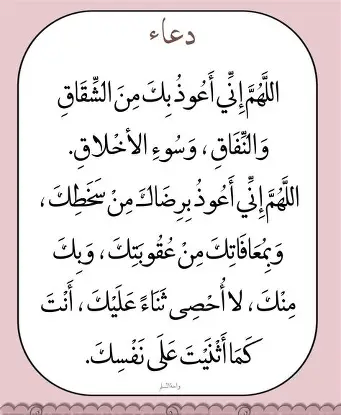 دعاء
اللَّهُمَّ إِنِّي أَعُوذُ بِكَ مِنَ الشِّقَاقِ
وَالنِّفَاقِ ، وَسُوءِ الأَخْلاقِ.
اللَّهُمَّ إِنِّي أَعُوذُ بِرِضَاكَ مِنْ سَخَطِكَ ،
وَبِمُعَافَاتِكَ مِنْ عُقُوبَتِكَ ، وَبِكَ
مِنْكَ ، لا أُحْصِى ثَنَاءً عَلَيْكَ ، أَنْتَ
كَمَا أَثْنَيْتَ عَلَى نَفْسِكَ.